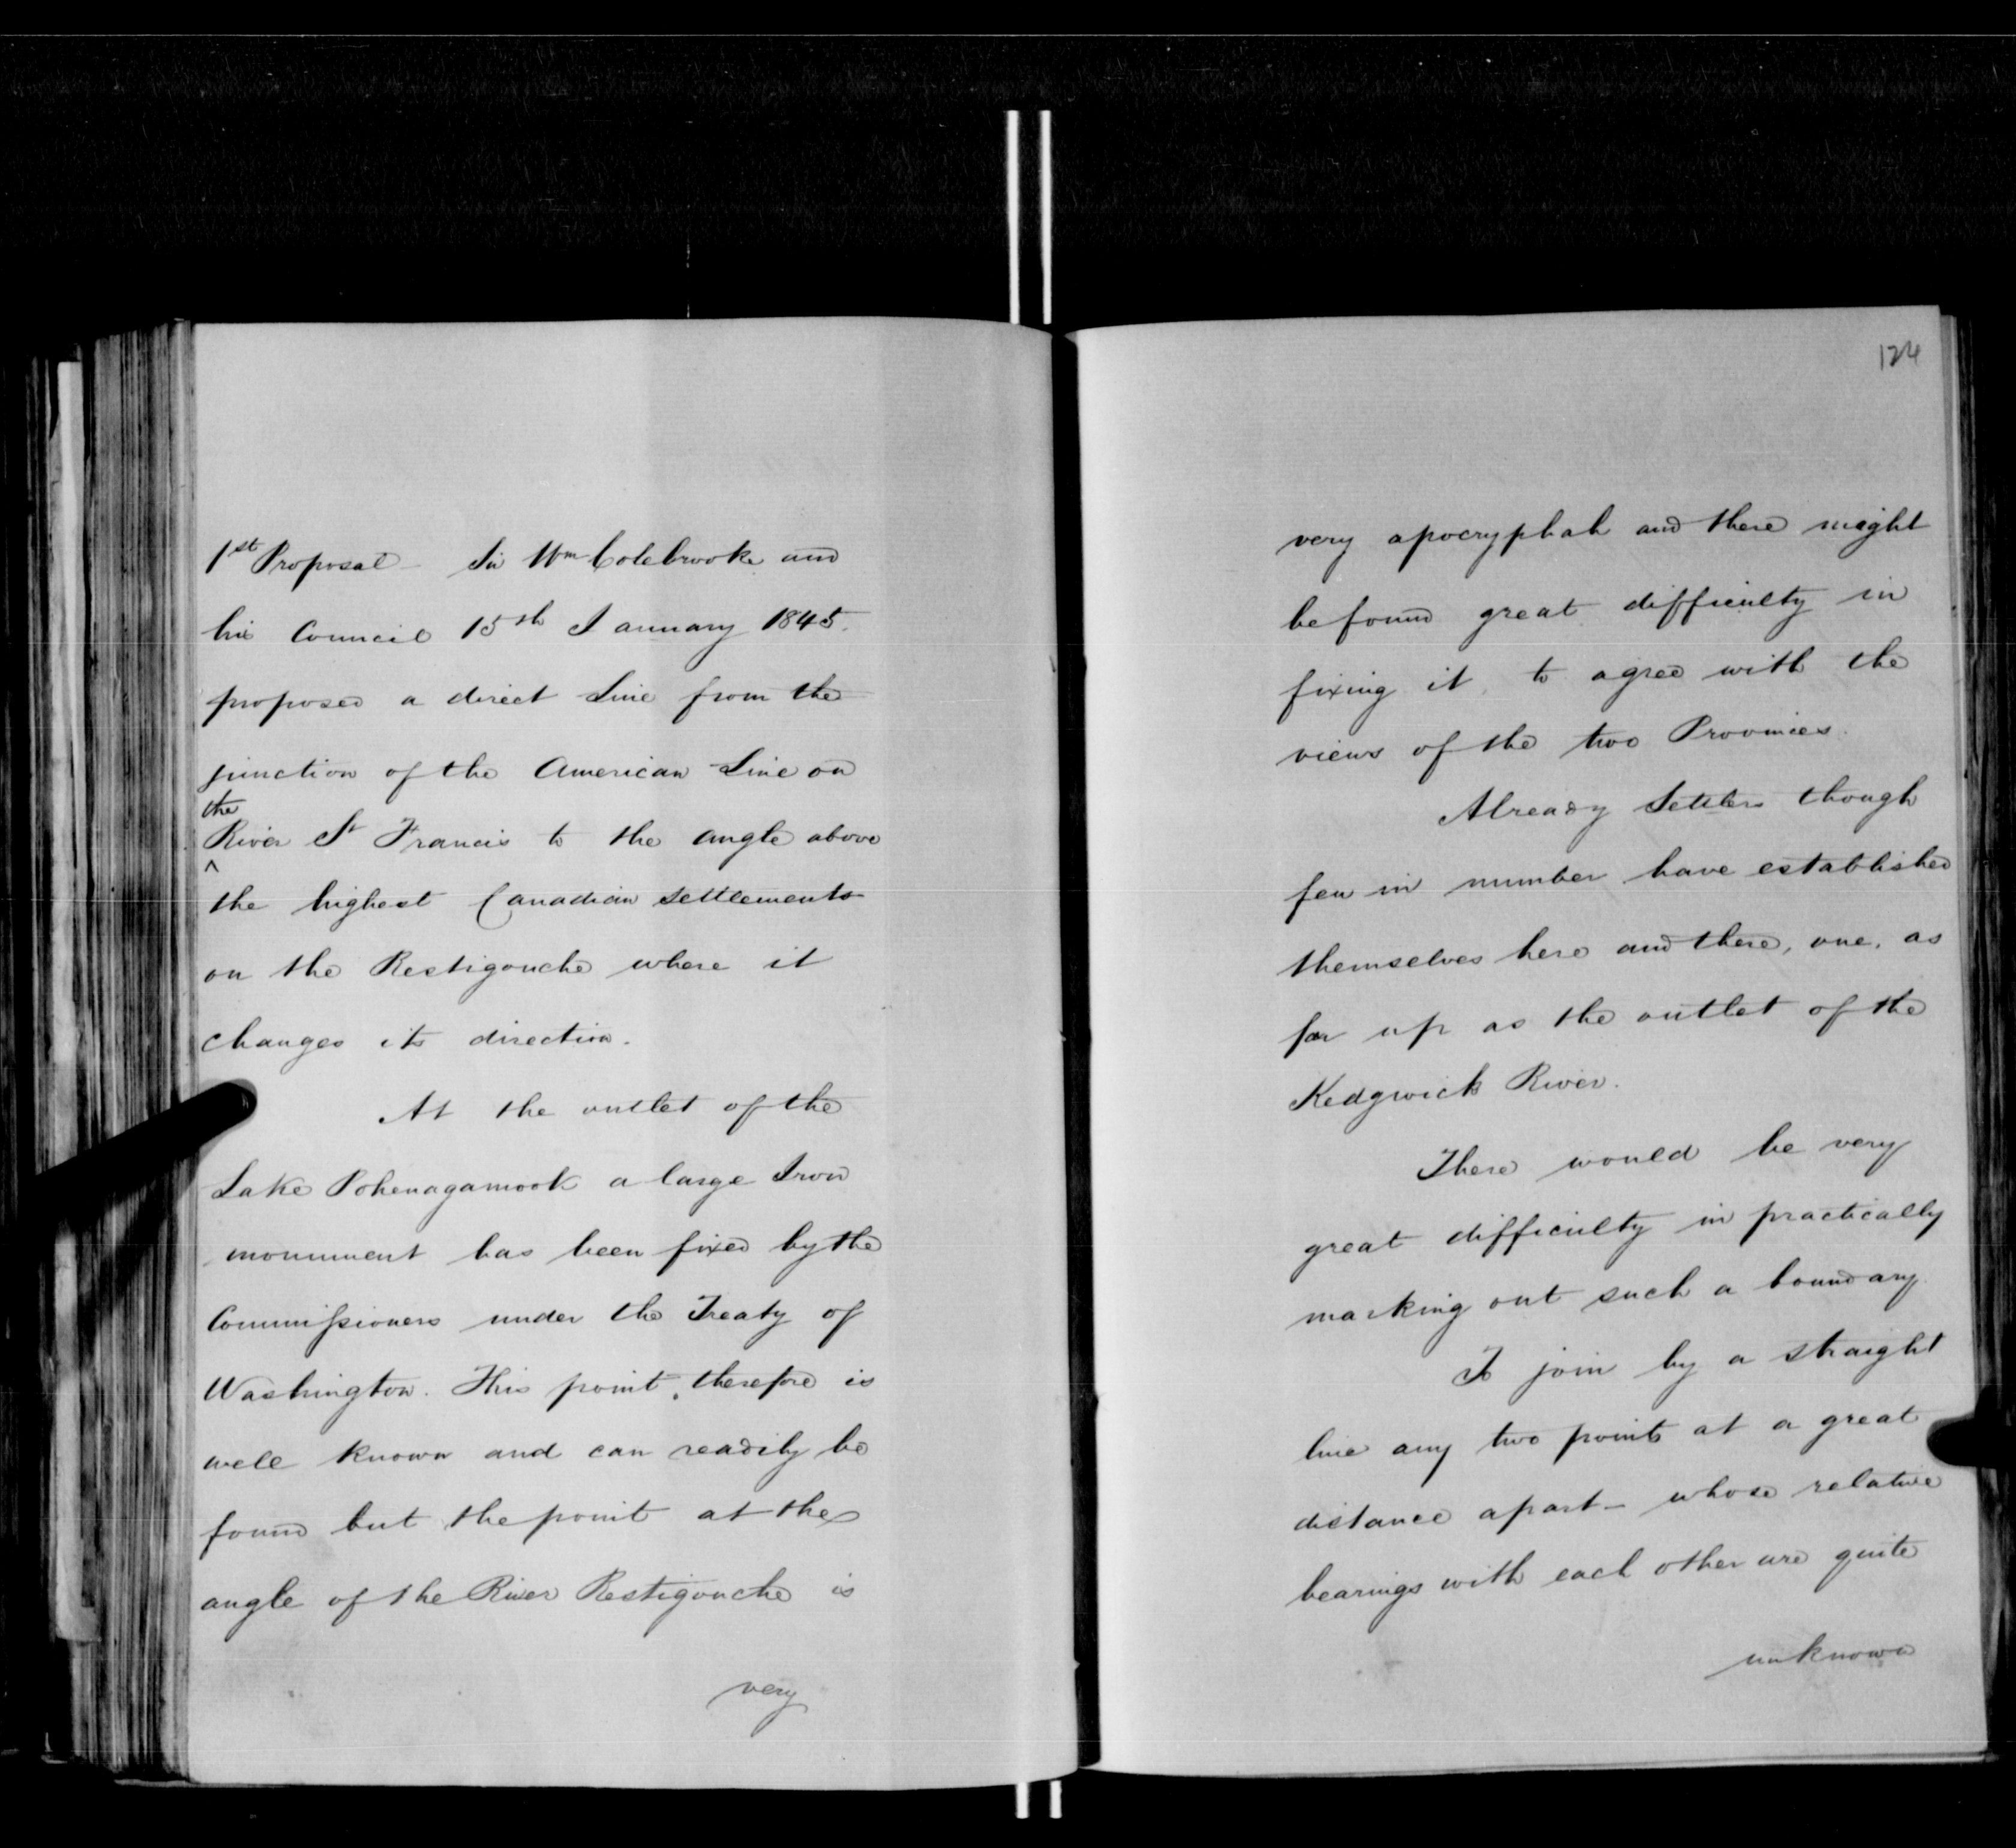 1st Proposal - Sir Wm Colebrooke and
his Council 15th January 1845.
proposed a direct Line from the
junction of the American Line on
the
River St Francis to the angle above
^
the highest Canadian settlements
on the Restigouche where it
changes its direction.
At the outlet of the
Lake Pohenagamook a large Iron
monument has been fixed by the
Commissioners under the Treaty of
Washington. This point, therefore is
well known and can readily be
found but the point at the
angle of the River Restigouche is
very
124
very apocryphal and there might
be found great difficulty in
fixing it, to agree with the
views of the two Provinces.
Already Settlers though
few in number have established
themselves here and there, one, as
far up as the outlet of the
Kedgwick River.
There would be very
great difficulty in practically
marking out such a boundary.
To join by a straight
line any two points at a great
distance apart - whose relative
bearings with each other are quite
unknown